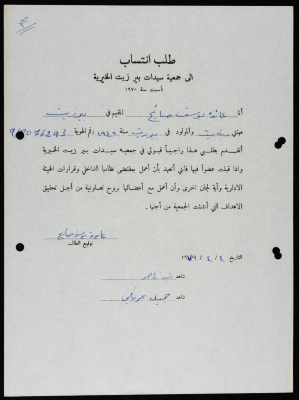 طلب انتساب
الى جمعية سيدات بير زيت الخيرية
تأسست سنة ١٩٧٠
أنا عائدة يوسف صايج المقيم في بيرزيت
مهنتي والمولود في بيرزيت سنة ١٩٤٩ رقم الهوية 93076293
أتقدم بطلبي هذا راجياً قبولي في جمعية سيدات بير زيت الخيرية
واذا قبلت عضواً فيها فانني أتعهد بأن أعمل بمقتضى نظامها الداخلي وقرارات الهيئة
الادارية وأية لجان اخرى وأن أعمل مع أعضائها بروح تعاونية من أجل تحقيق
الاهداف التي أنشئت الجمعية من أجلها .
عايدة يوسف صايج
توقيع الطالب
التاريخ ٤ / ٤ / ١٩٧٩
شاهد
شاهد جميلة